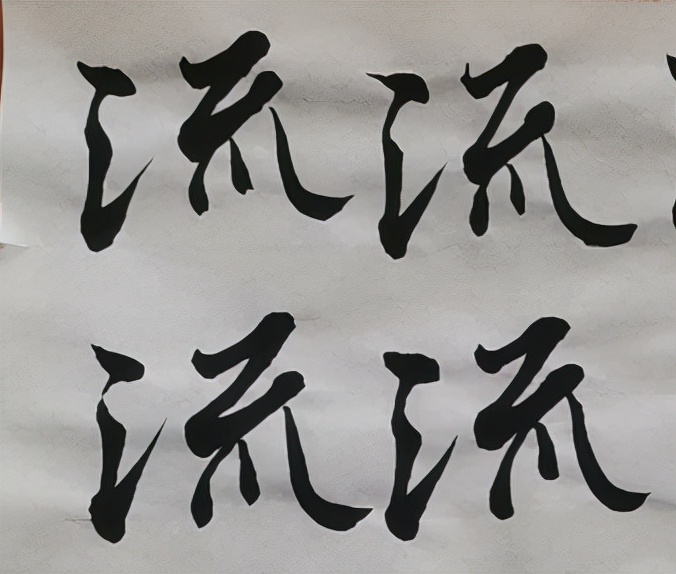 流流
流流